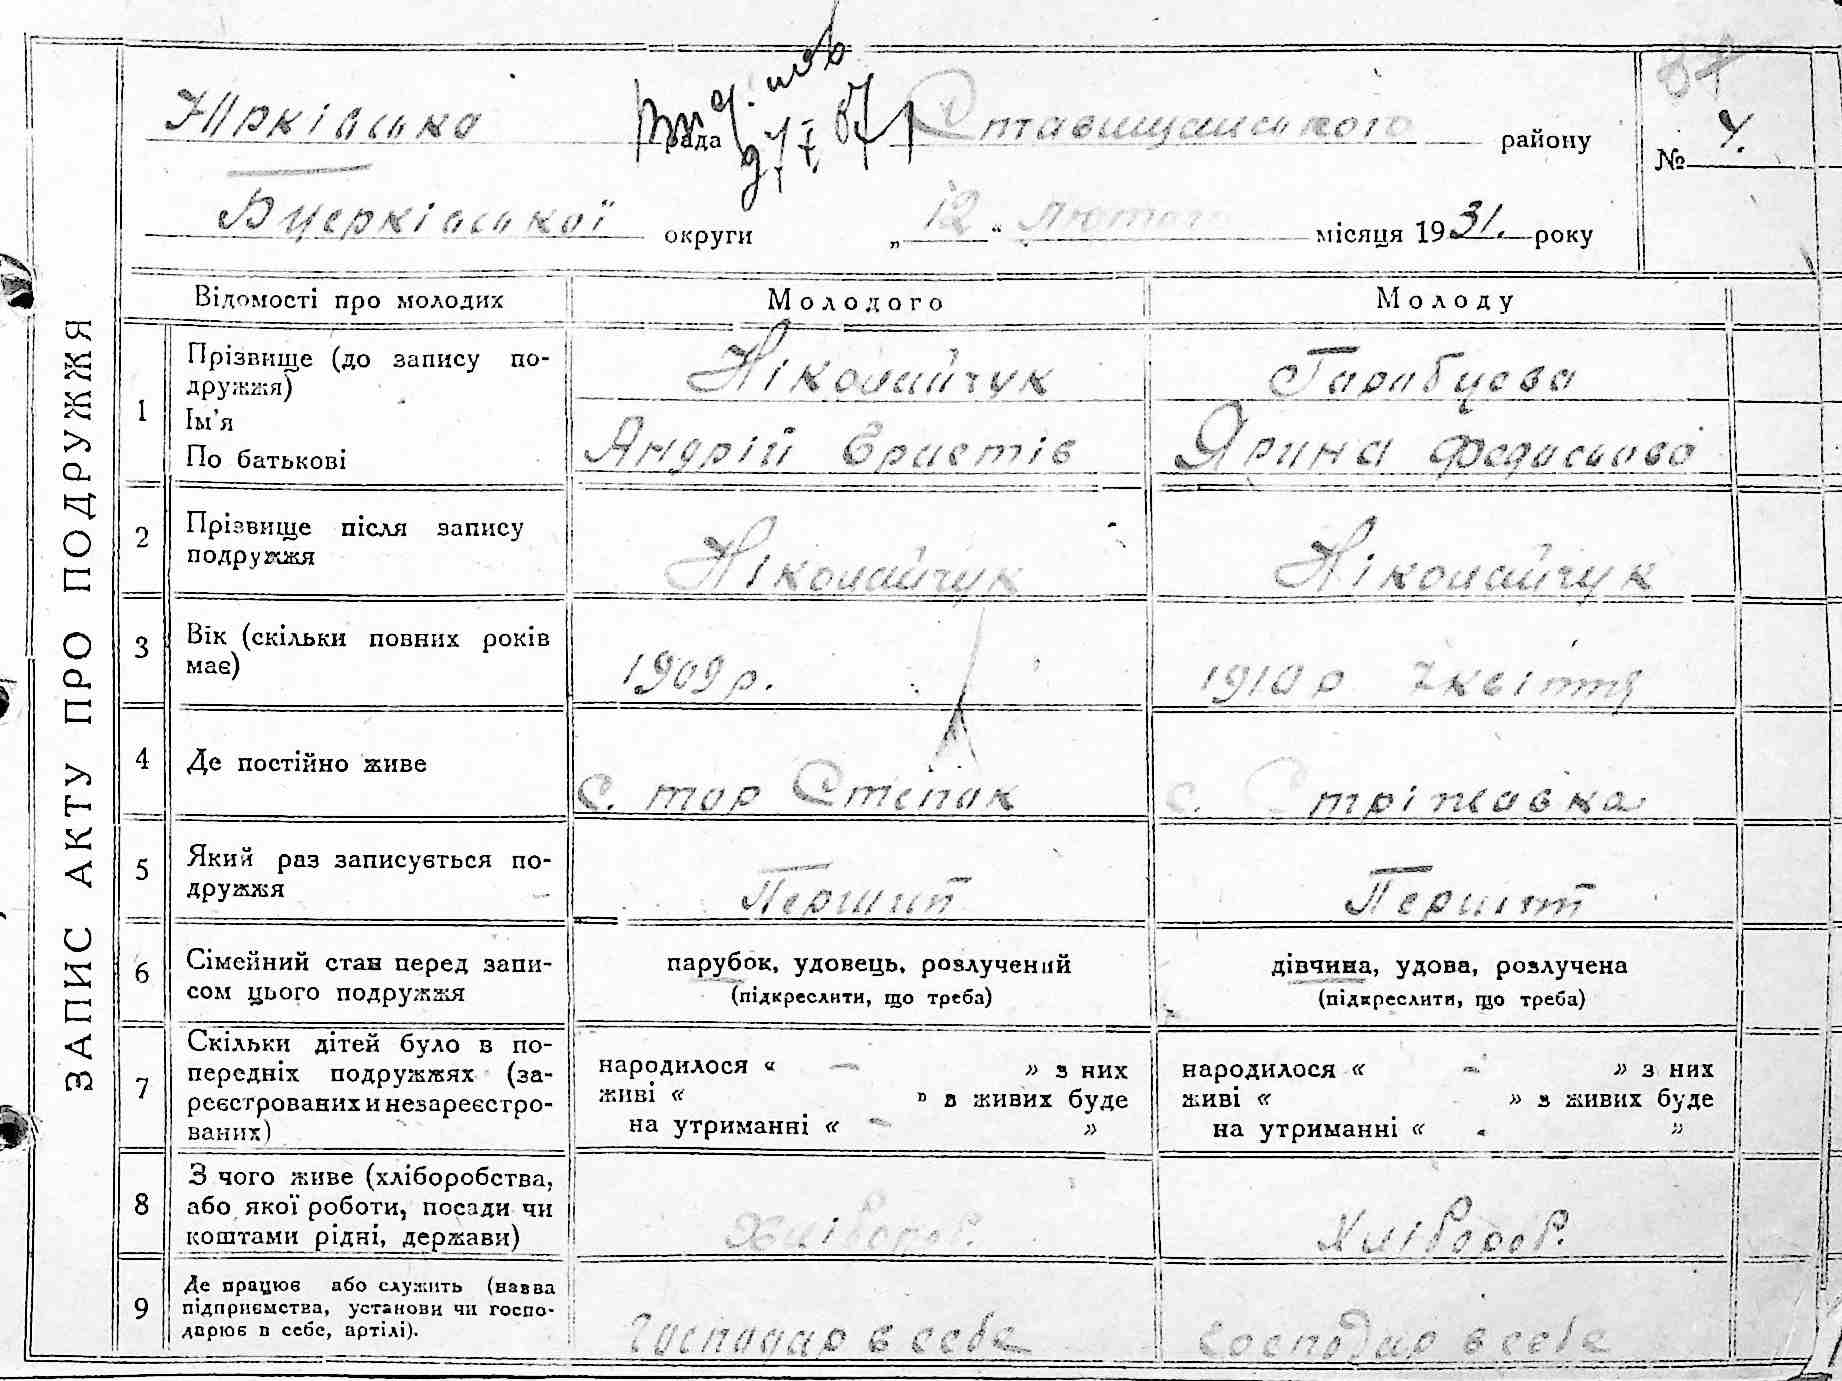 ЗАПИС АКТУ ПРО ПОДРУЖЖЯ
Юрківська рада Ставищанського району
№ 4.
Б Церківської округи „12“ лютого місяця 1931. року
Відомості про молодих
Молодого
Молоду
1
Прізвище (до запису по-
дружжя)
Ім'я
По батькові
Ніколайчук
Андрій
Ярина
2
Прізвище після запису
подружжя
Ніколайчук
Ніколайчук
3
Вік (скільки повних років
має)
1909 р.
1910 р 7 квіття
4
Де постійно живе
с. Стріжавка
5
Який раз записується по-
дружжя
Перший
Перший
6
Сімейний стан перед запи-
сом цього подружжя
парубок, удовець, розлучений
(підкреслити, що треба)
дівчина, удова, розлучена
(підкреслити, що треба)
7
Скільки дітей було в по-
передніх подружжях (за-
реєстрованих и незареєстро-
ваних)
народилося « – » з них
живі « » з живих буде
на утриманні « – »
народилося « – » з них
живі « » з живих буде
на утриманні « - »
8
З чого живе (хліборобства,
або якої роботи, посади чи
коштами рідні, держави)
Хлібороб.
Хлібороб.
9
Де працює або служить (назва
підприємства, установи чи госпо-
дарює в себе, артілі).
Господар в себе
Господар в себе